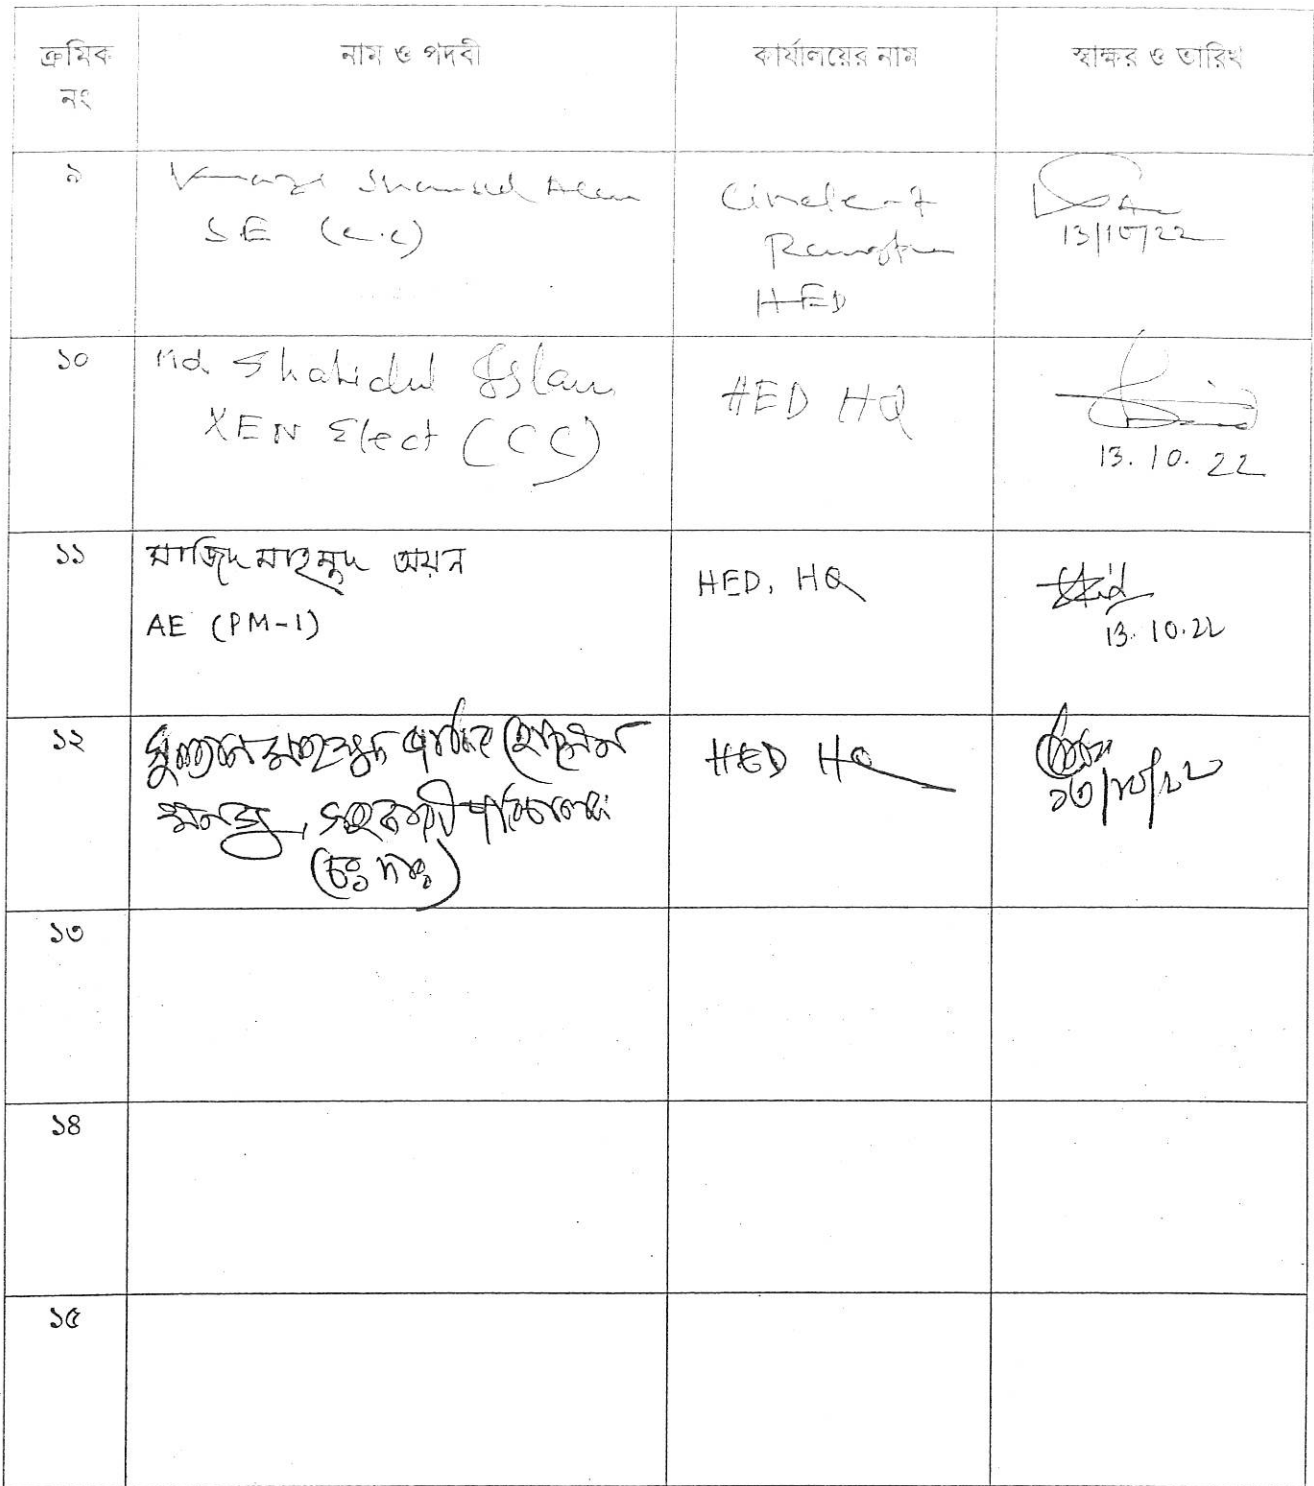 ক্রমিক নং
নাম ও পদবী
কার্যালয়ের নাম
স্বাক্ষর ও তারিখ
৯
Shamsul Alam
SE (C.C)
Circle-7
Rangpur
HED
13/10/22
১০
Md. Shahidul Islam
XEN Elect (CC)
HED HQ
13.10.22
১১
মাজিদ মাহমুদ অয়ন
AE (PM-1)
HED, HQ
13.10.22
১২
HED HQ
১৩/১০/২২
সহকারী পরিচালক
(চঃ দাঃ)
১৩
১৪
১৫